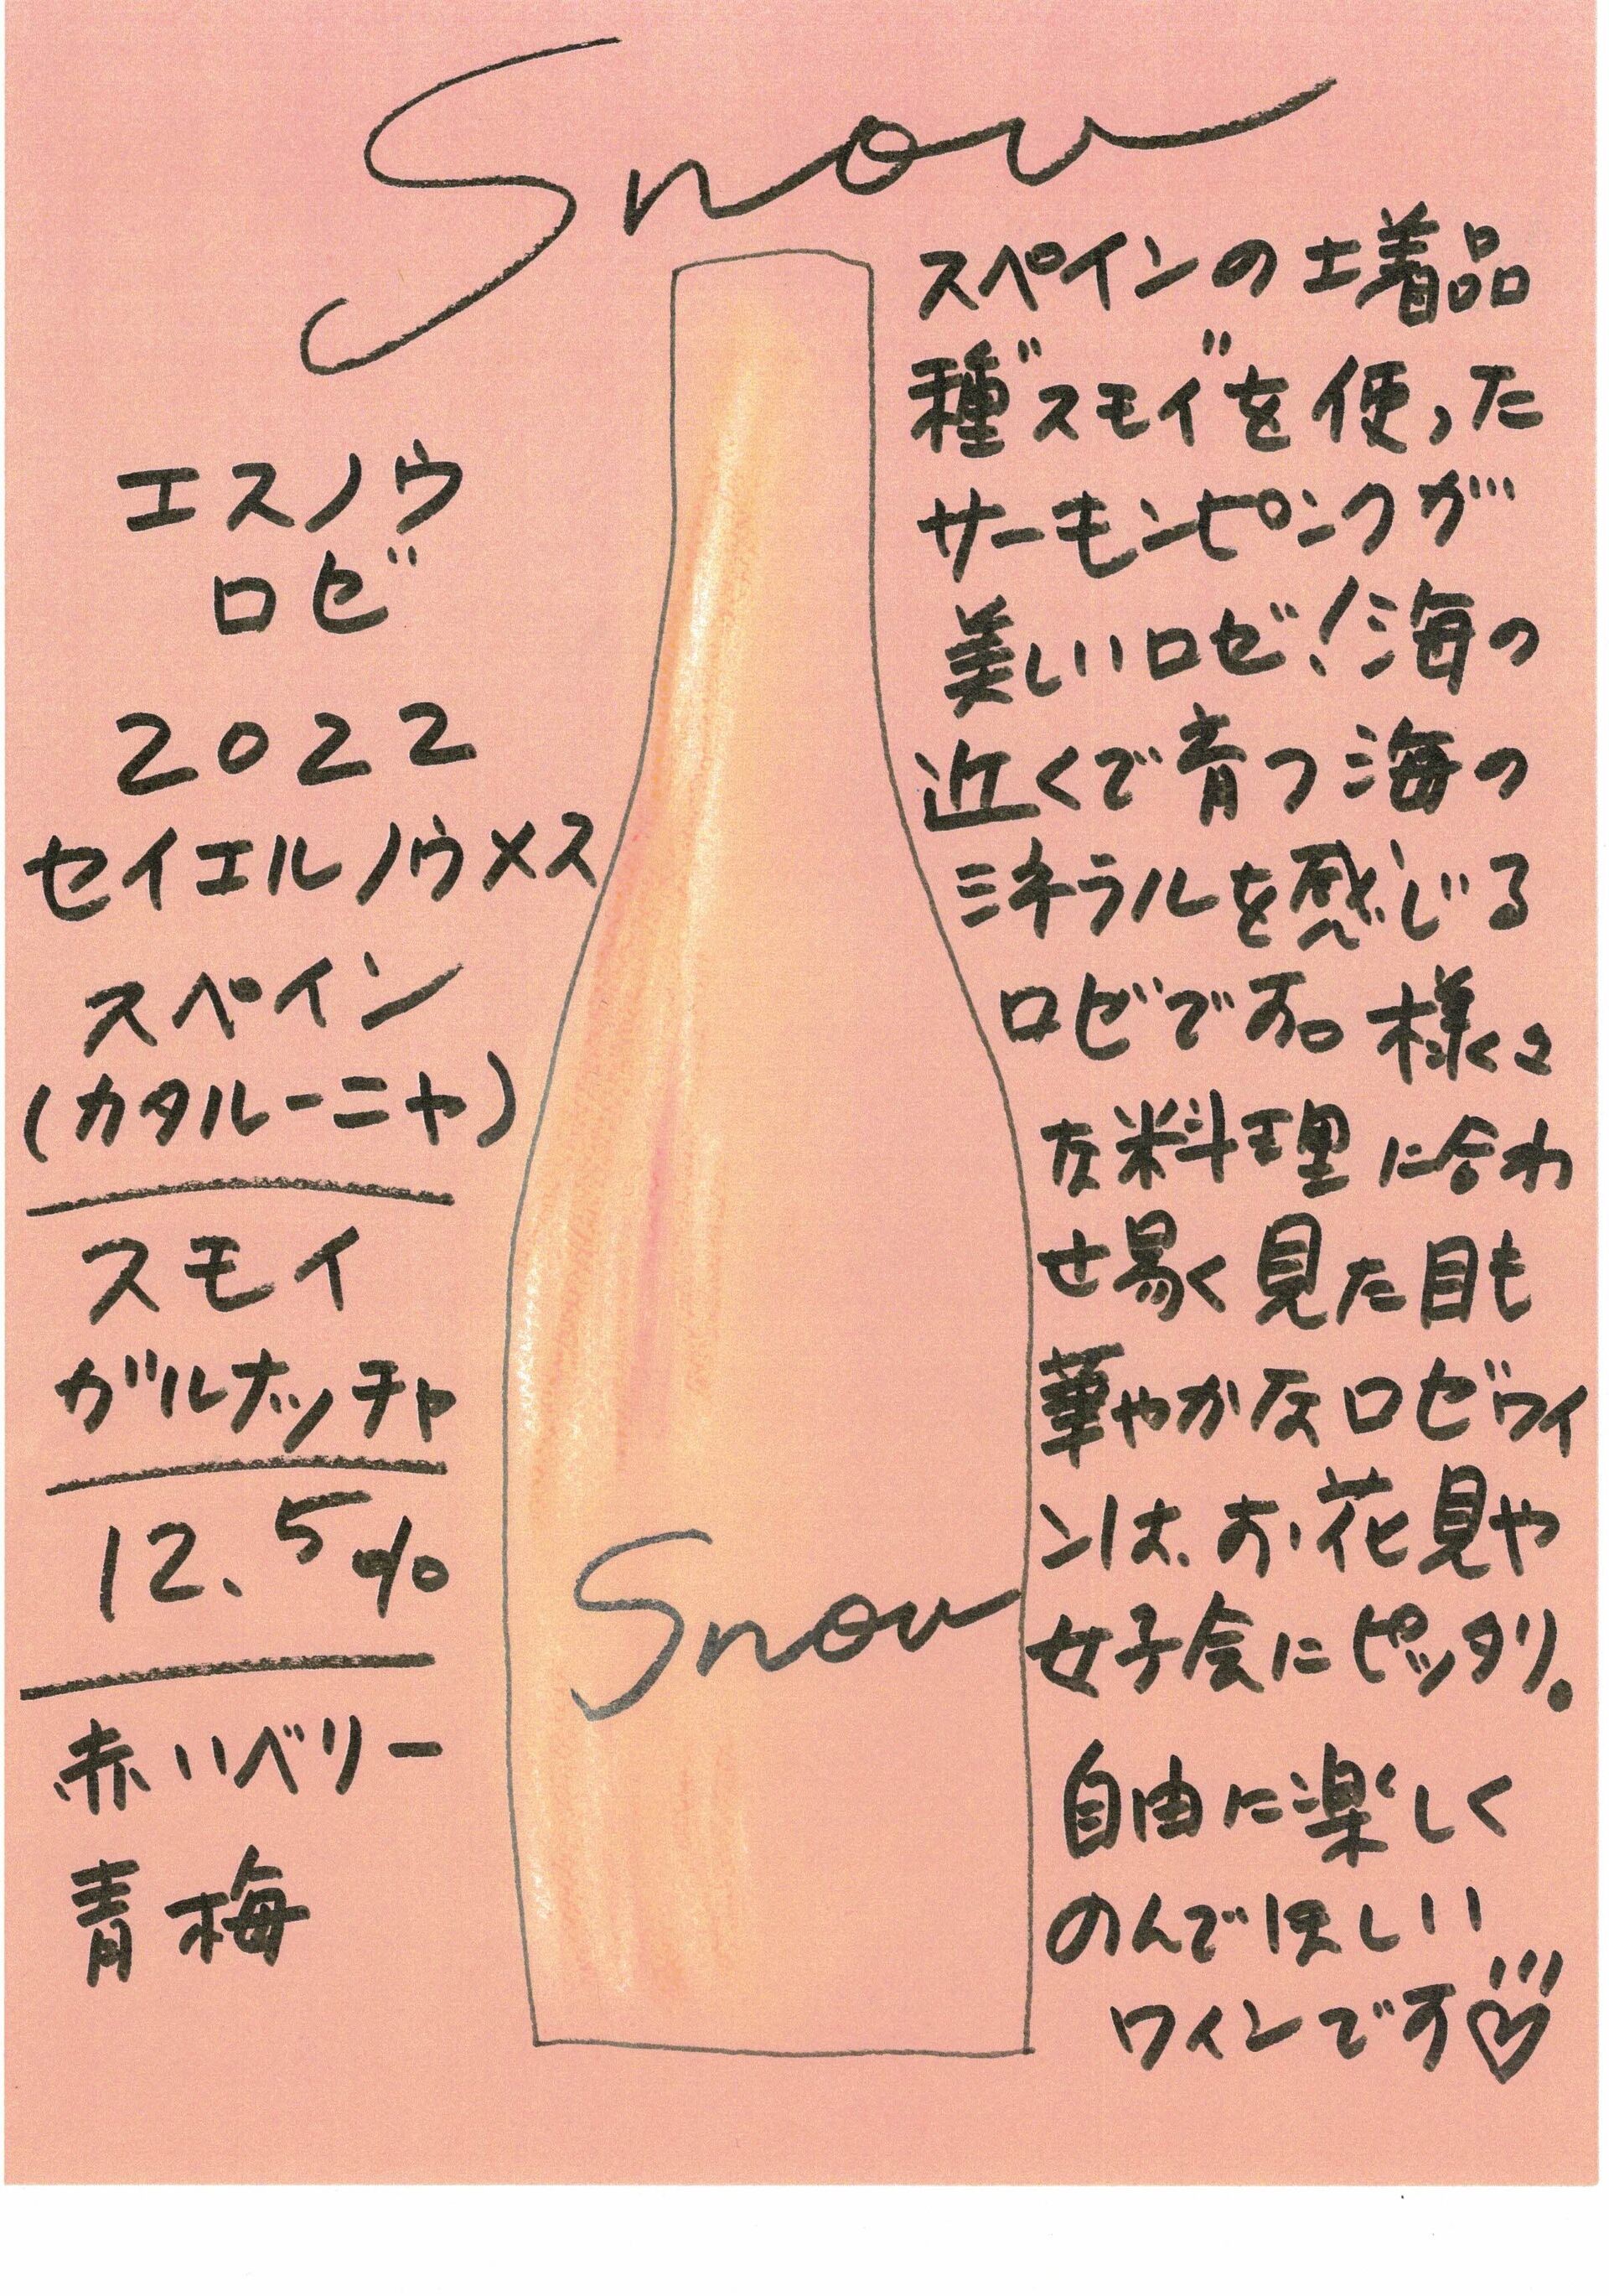 Snou
エスノウ
ロゼ
2022
セイエルノウメス
スペイン
(カタルーニャ)
スモイ
ガルナッチャ
12.5%
赤いベリー
青梅
Snou
スペインの土着品
種"スモイ"を使った
サーモンピンクが
美しいロゼ!海の
近くで育つ海の
ミネラルを感じる
ロゼです。様々
な料理に合わ
せ易く見た目も
華やかなロゼワイ
ンは、お花見や
女子会にピッタリ。
自由に楽しく
のんでほしい
ワインです♡